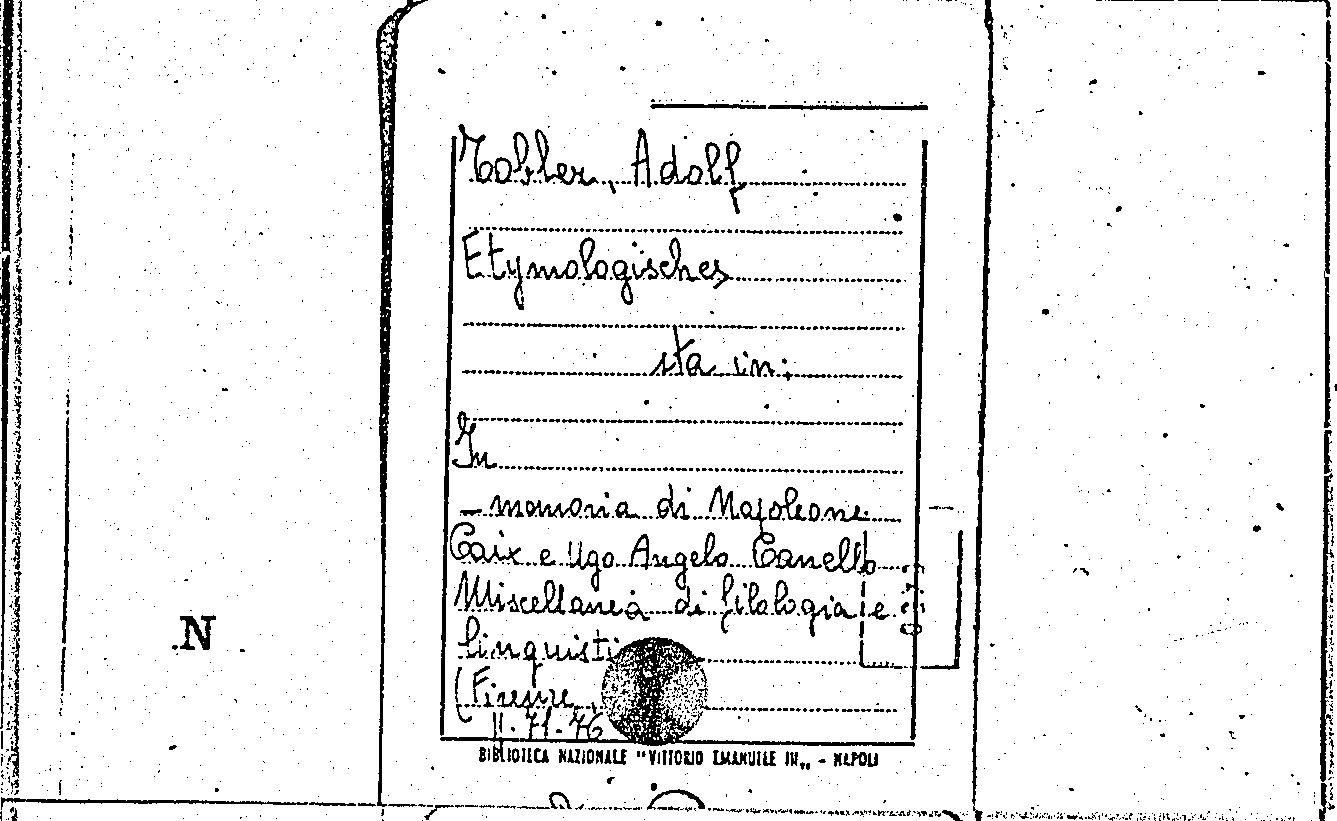 Tobler, Adolf
Etymologisches
sta in:
In
- memoria di Napoleone
Caix e Ugo Angelo Canello
Miscellanea di filologia e
linguisti
(Firenze,
pp. 71-76
N
BIBLIOTECA NAZIONALE "VITTORIO EMANUELE III„ - NAPOLI